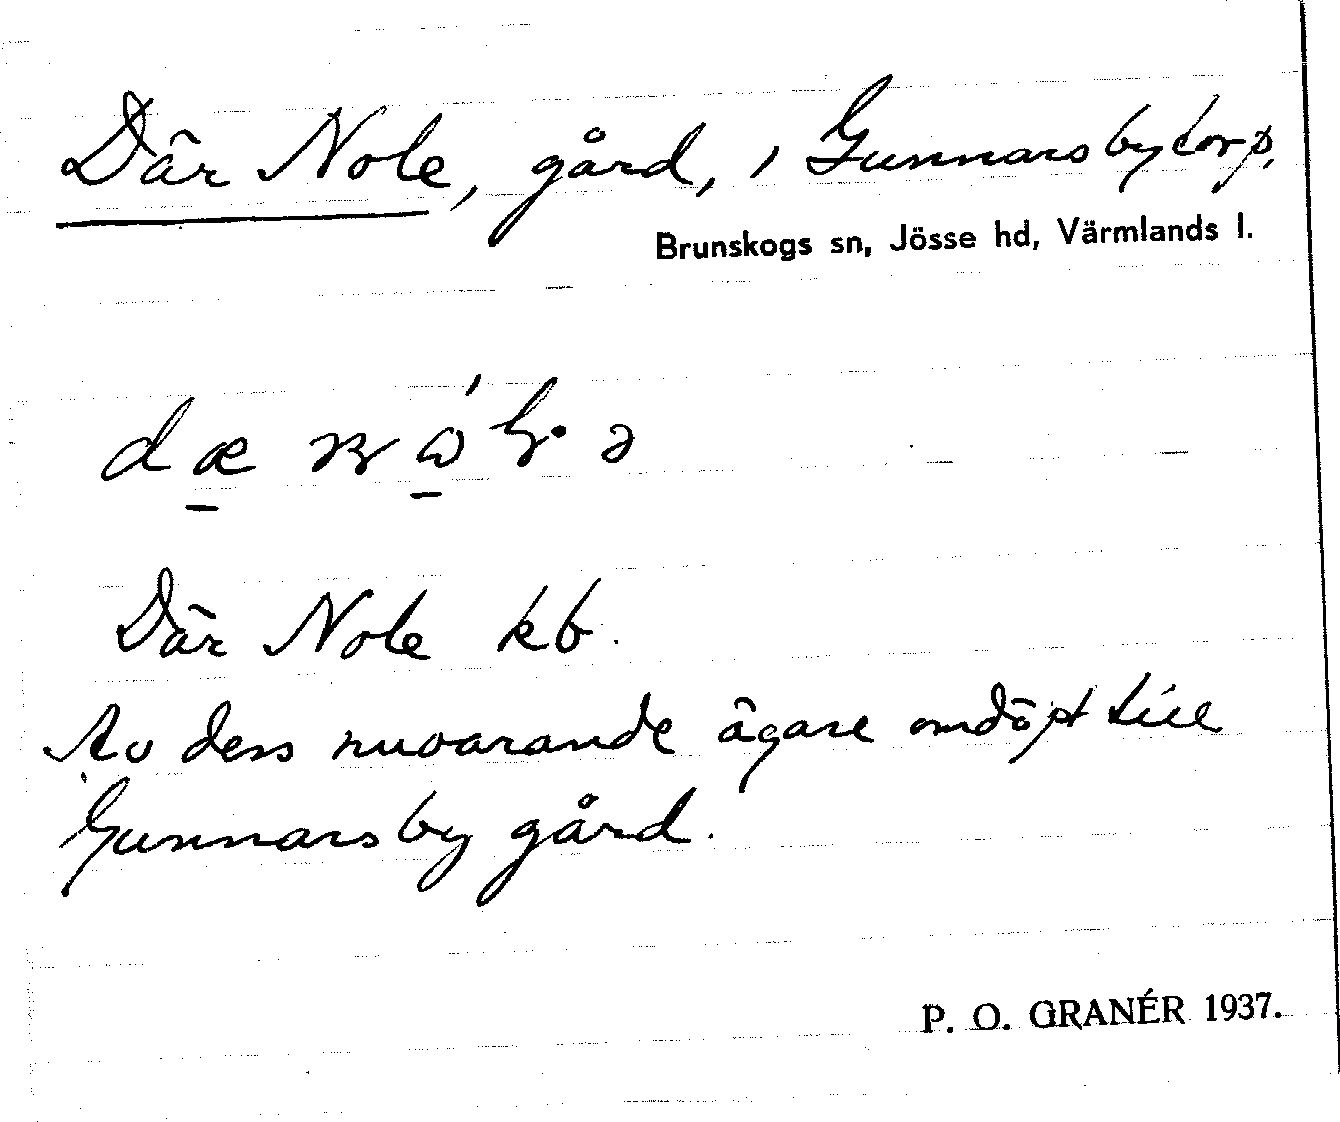 Där Nole, gård, i Gunnarsbytorp,
Brunskogs sn, Jösse hd, Värmlands l.
Där Nole kb.
Av dess nuvarande ägare omdöpt till
Gunnarsby gård.
P. O. GRANÉR 1937.